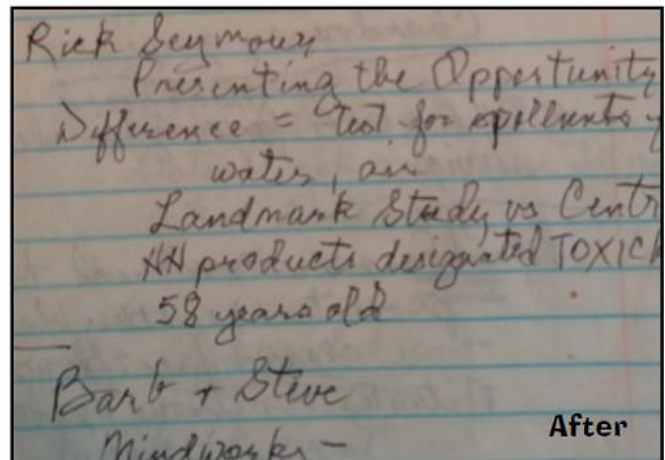 Rick Seymour
Presenting the Opportunity
Difference = test for pollutants
water, air
Landmark Study vs Centr
HH products designated TOXIC
58 years old
Barb + Steve
Mindworks -
After